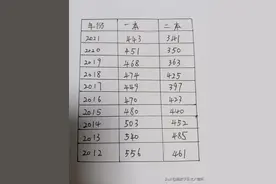 年份 一本 二本
2021 443 341
2020 451 350
2019 468 363
2018 474 425
2017 449 397
2016 470 423
2015 480 440
2014 503 452
2013 540 485
2012 556 461